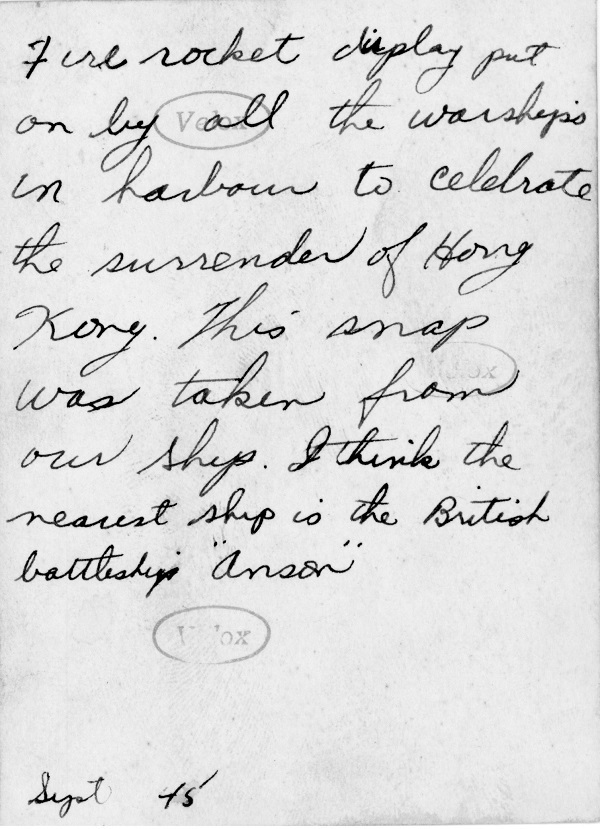 Fire rocket display put
on by all the warships
in harbour to celebrate
the surrender of Hong
Kong. This snap
was taken from
our ship. I think the
nearest ship is the British
battleship "Anson"
Velox
Velox
Velox
Sept 45